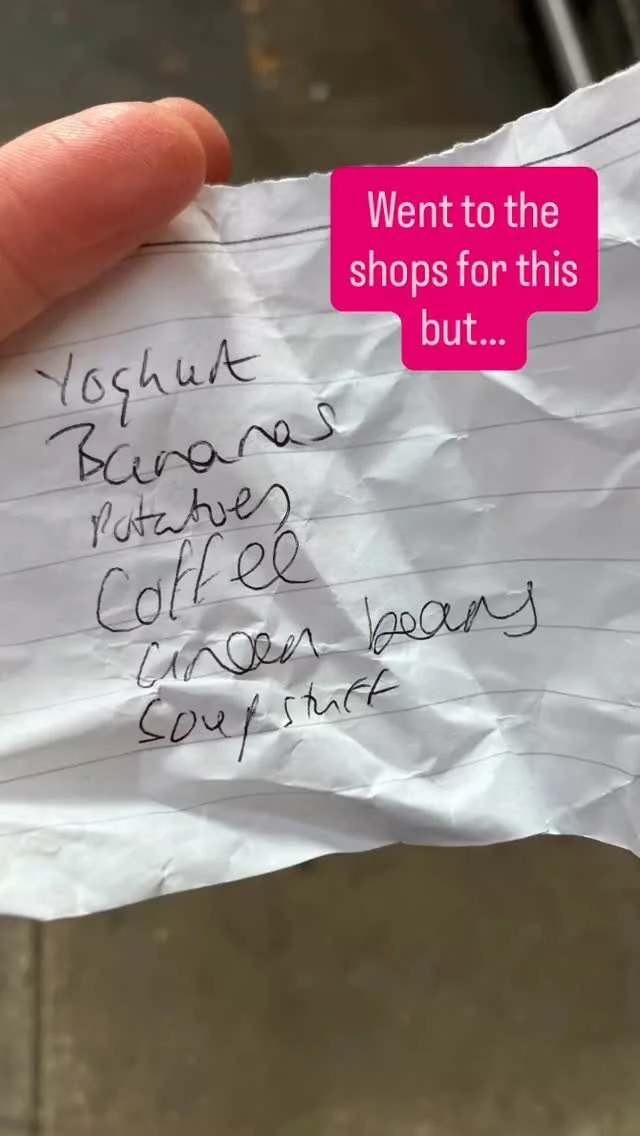 Went to the
shops for this
but...
Yoghurt
Bananas
Potatoes
Coffee
Green beans
Soup stuff